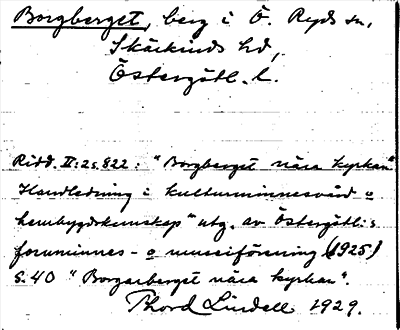 Borgberget, berg i Ö. Ryds sn,
Skärkinds hd,
Östergötl. l.
Ridd. II:2 s. 822: "Borgberget nära kyrkan"
Handledning i kulturminnesvård o
hembygdskunskap" utg. av Östergötl:s
fornminnes- o museiförening (1925)
s. 40 "Borgarberget nära kyrkan".
Thord Lindell 1929.